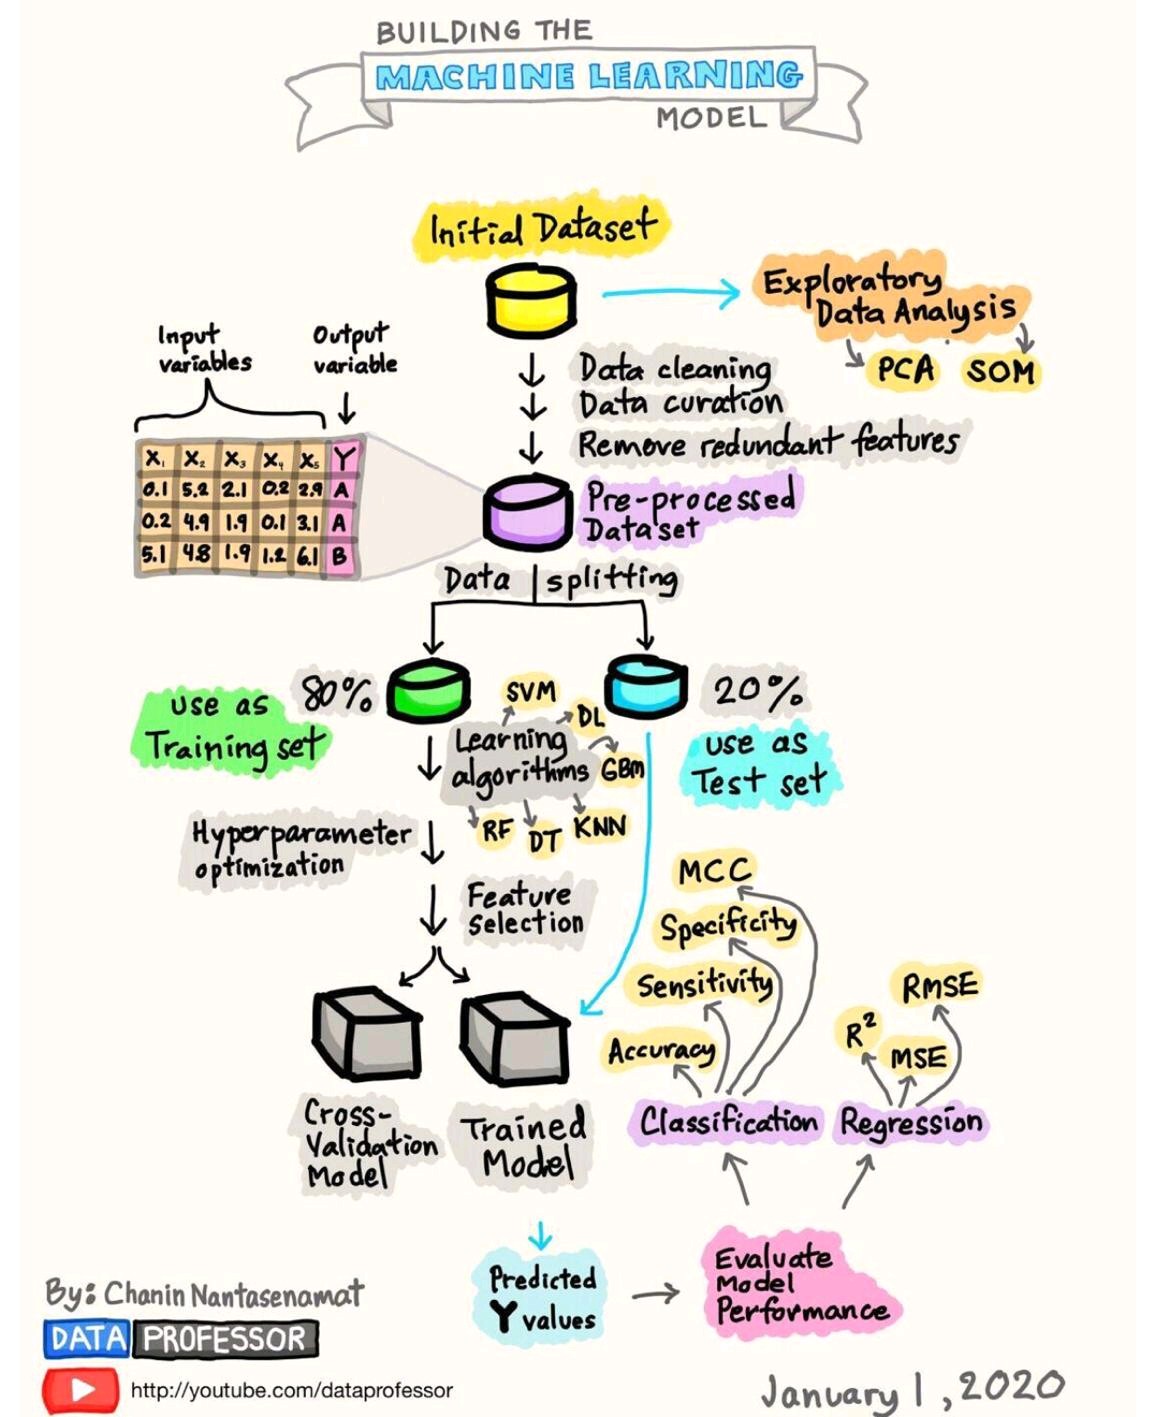 BUILDING THE
MACHINE LEARNING
MODEL
Initial Dataset
Exploratory
Data Analysis
PCA
SOM
Input
variables
Output
variable
Data cleaning
Data curation
Remove redundant features
X₁ X₂ X₃ X₄ X₅ Y
0.1 5.2 2.1 0.2 2.9 A
0.2 4.9 1.9 0.1 3.1 A
5.1 4.8 1.9 1.2 6.1 B
Pre-processed
Dataset
Data splitting
80%
20%
use as
Training set
SVM
DL
Learning
algorithms
GBM
RF
DT
KNN
use as
Test set
Hyperparameter
optimization
Feature
Selection
MCC
Specificity
Sensitivity
Accuracy
RMSE
R²
MSE
Cross-
Validation
Model
Trained
Model
Classification
Regression
Predicted
Y values
Evaluate
Model
Performance
By: Chanin Nantasenamat
DATA PROFESSOR
http://youtube.com/dataprofessor
January 1, 2020